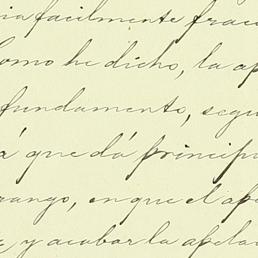 ia facilmente frac
Como he dicho, la ap
fundamento, segu
á que dá principi
rango, en que el ap
y acabar la apela